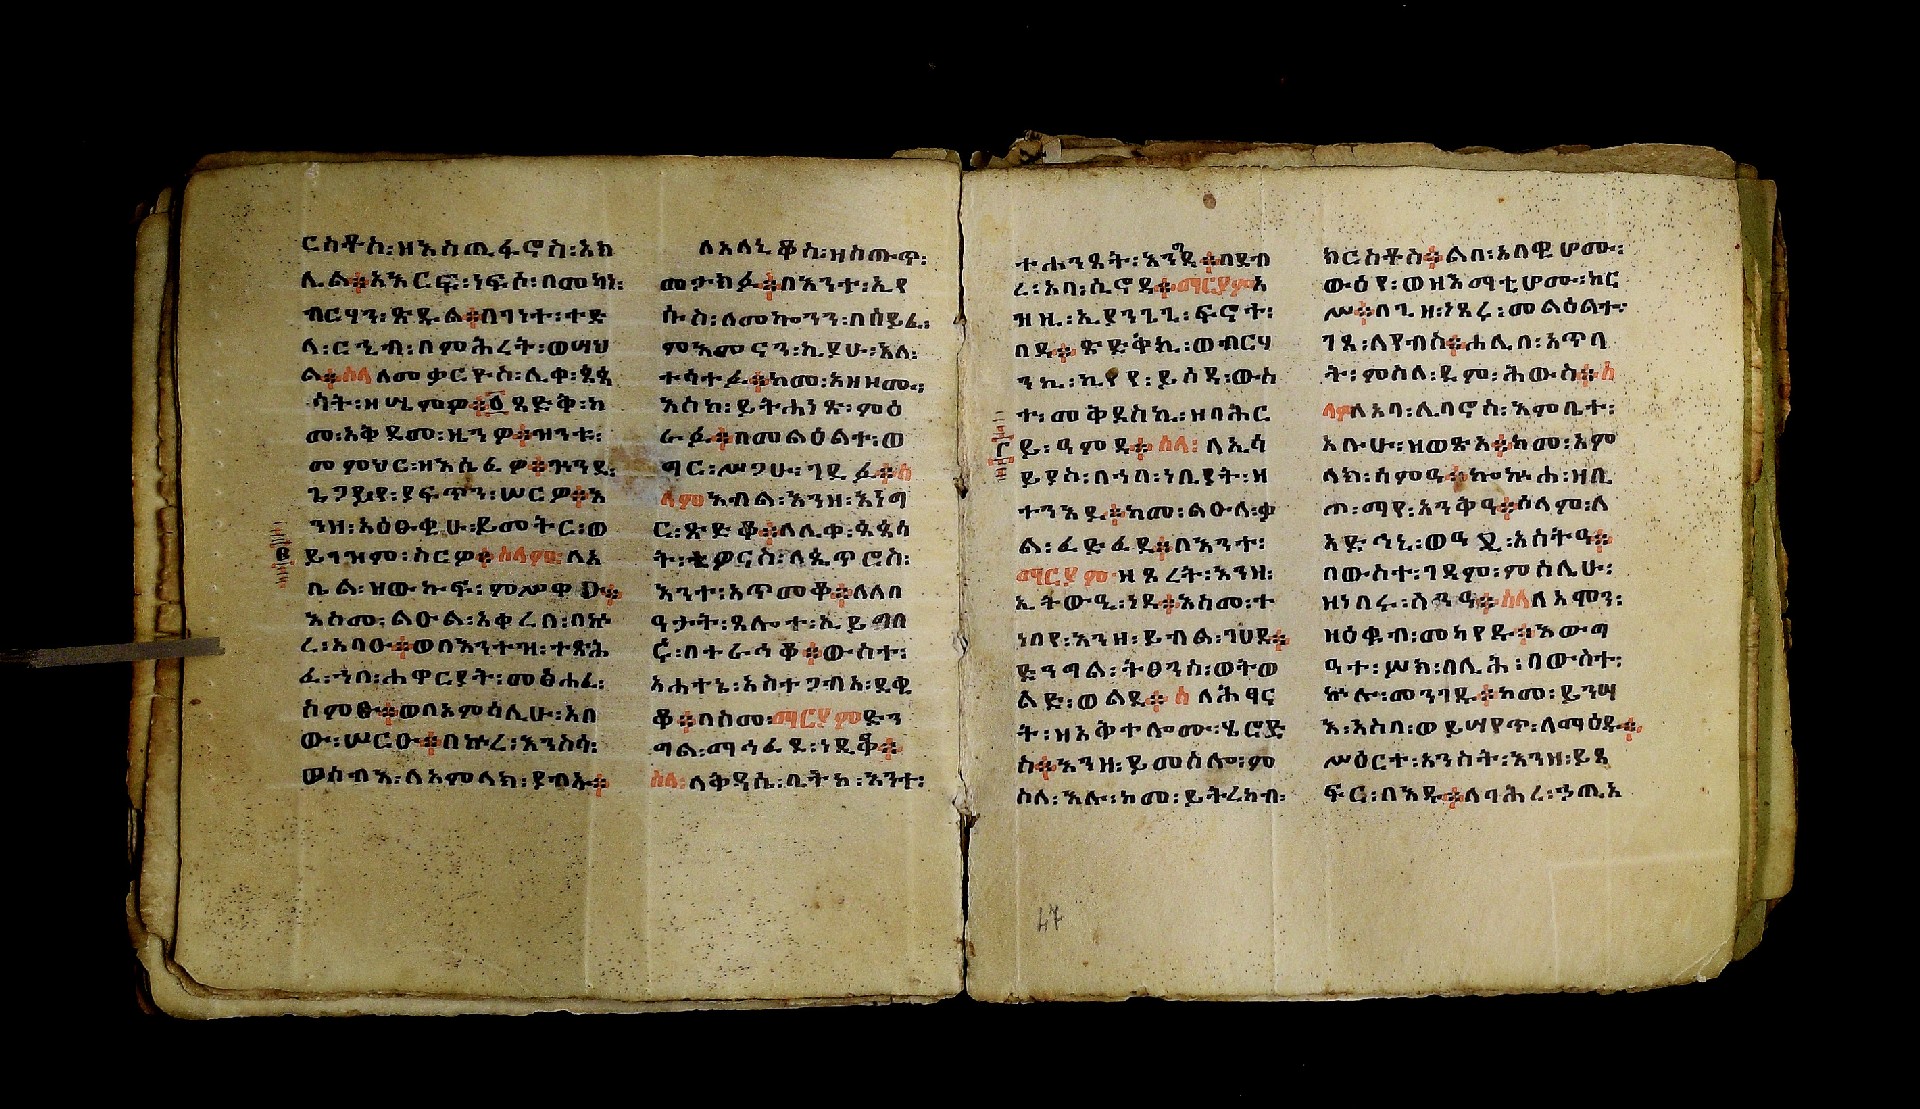 ርስቶስ፡ዘእስጢፋኖስ፡እክ
ሊል።አእርፍ፡ነፍሰ፡በመካነ፡
ብርሃን፡ጽዱል።በገነተ፡ተድ
ላ፡ርኂብ፡በምሕረት፡ወሣህ
ል።ሰላለመቃርዮስ፡ሊቀ፡ጳጳ
ሳት፡ዘሤምዎ።፩ጻድቅ፡ከ
መ፡አቅደመ፡ዜንዎ።ዝንቱ፡
መምህር፡ዘአሲፈዎ።ዝንደ፡
ያፍጥን፡ሠርዎ።እ
ንዘ፡አዕፁቂሁ፡ይመትር፡ወ
ይገዝም፡ስርዎ።ሰላም፡ለአ
ቤል፡ዝውኩፍ፡ምሥዋዑ።
እስመ፡ልዑል፡አቅረበ፡በኵ
ረ፡አባዑ።ወበእንተዝ፡ተጽሕ
ፈ፡ኀበ፡ሐዋርያት፡መፅሐፈ፡
ስምፁ።ወበአምሳሊሁ፡አበ
ው፡ሠርዑ።በኵረ፡እንስሳ፡
ወስብእ፡ለአምላክ፡ይብኡ።
ለአለኒቆስ፡ዝስጡጥ፡
መታክፉ።በእንተ፡ኢየ
ሱስ፡ለመኰንን፡በሰይፈ፡
ምእመናን፡ኪያሁ፡እለ፡
ተሳተፉ።ከመ፡አዘዘሙ፡
እስከ፡ይትሐነጽ፡ምዕ
ራፉ።በመልዕልተ፡ወ
ግር፡ሥጋሁ፡ገደፉ።ሰ
ላምእብል፡እንዘ፡እነግ
ር፡ጽድቆ።ለሊቀ፡ጳጳሳ
ት፡ቴዎርስ፡ለጴጥሮስ፡
እንተ፡አጥመቆ።ለለበ
ዓታት፡ጸሎተ፡ኢይግበ
ሮ፡በተራኅቆ።ውስተ፡
አሐተኔ፡አስተጋብአ፡ደቂ
ቆ።በስመ፡ማርያምድን
ግል፡ማኅፈደ፡ነዲቆ።
ሰላ፡ለቅዳሴ፡ቤትከ፡እንተ፡
ተሐንጸት፡እንግዳ።በደብ
ረ፡አባ፡ሲኖዳ።ማርያምእ
ግዝ፡ኢያንጊጊ፡ፍኖት፡
በዳ።ጽድቅኪ፡ወብርሃ
ንኪ፡ኪየየ፡ይሰዳ፡ውስ
ተ፡መቅደስኪ፡ዘባሕር
ይ፡ዓምዳ።ሰላ፡ለኢሳ
ይያስ፡በኀበ፡ነቢያት፡ዘ
ተንእደ።ከመ፡ልዑለ፡ቃ
ል፡ፈድፈደ።በእንተ፡
ማርያም፡ዘጸረት፡እንዘ፡
ኢትውዒ፡ነዳ።እስመ፡ተ
ነበየ፡እንዘ፡ይብል፡ገሀደ።
ድንግል፡ትፀንስ፡ወትወ
ልድ፡ወልደ።ሰለሕፃና
ት፡ዘአቅተሎሙ፡ሄሮድ
ስ።እንዘ፡ይመስሎ፡ም
ስለ፡እሉ፡ከመ፡ይትረከብ፡
ክርስቶስ።ልበ፡አለዊሆሙ፡
ውዕየ፡ወዘእማቲሆሙ፡ከር
ሥ።በጊዘ፡ነጸረ፡መልዕልተ፡
ገጸ፡ለየብስ።ሐሊበ፡አጥባ
ት፡ምስለ፡ደም፡ሕውስ።ሰ
ላምለአባ፡ሊባኖስ፡እምቤተ፡
አቡሁ፡ዘወጽአ።ከመ፡አም
ላክ፡ሰምዓ።ኰኵሐ፡ዘቢ
ጦ፡ማየ፡አንቅዓ።ሰላም፡ለ
አድኅኒ፡ወዓ፲፪፡አስትዓ።
በውስተ፡ገዳም፡ምስሊሁ፡
ዘነበሩ፡ስዱዓ።ሰላለአሞን፡
ዘዕቁብ፡መካየዱ።እውግ
ዓተ፡ሥክ፡በሊሕ፡በውስተ፡
ኵሉ፡መንገዱ።ከመ፡ይንሣ
እ፡እስበ፡ወይሣየጥ፡ለማዕዱ።
ሥዕርተ፡አንስት፡እንዘ፡ይጸ
ፍር፡በእዱ።ለባሕረ፡ኃጢአ
47